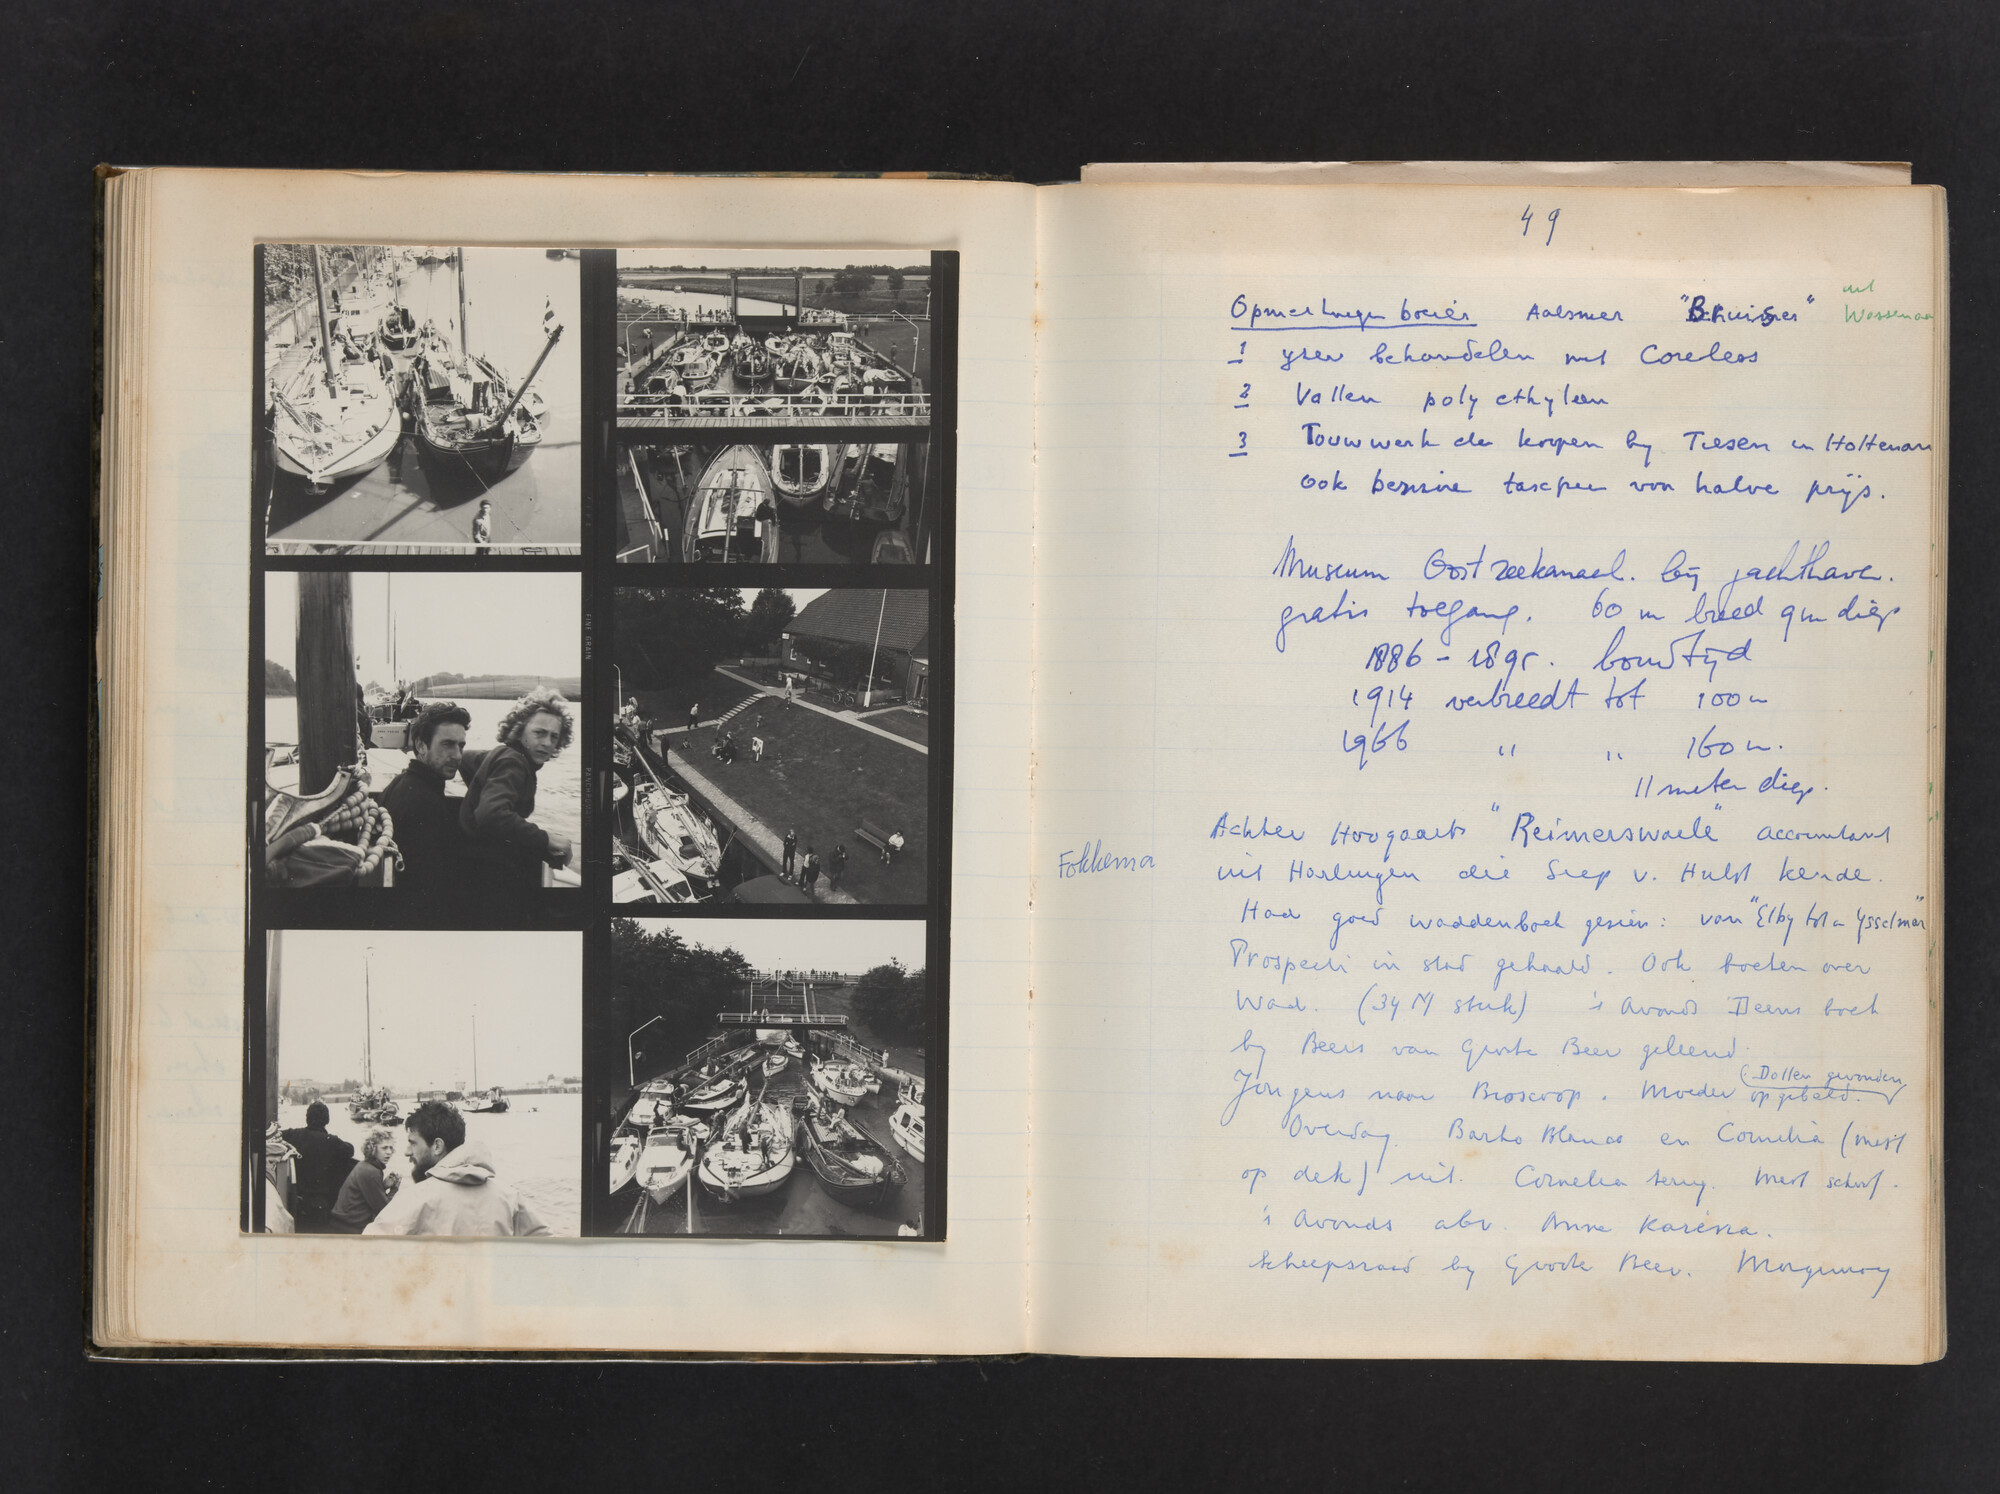 49
Opmerkingen boeier Aalsmeer "Bruiser" uit Wassenaar
1 yser behandelen met Coreless
2 Vallen polyethyleen
3 Touwwerk de koopen by Tiesen in Holtenau
ook benzine van halve prijs.
Museum Oostzeekanaal. bij jachthaven.
gratis toegang. 60 m breed 9 m diep
1886 - 1895. bouwtijd
1914 verbreedt tot 100 m
1966 " " 160 m.
11 meter diep.
Achter Hoogaarts "Reimerswaele" accountant
Fokkema
uit Harlingen die Siep v. Hulst kende.
Had goed waddenboek gezien: van "Elby tot Ysselmeer"
Prospecti in stad gehaald. Ook boeken over
Wad. (34 M stuk) 's Avonds Deens boek
by Beers van Grote Beer geleend
Jongens naar Bioscoop. Moeder opgebeld.
(Dollen gevonden
Overdag. Barko Blanco en Cornelia (mest
op dek) uit. Cornelia terug. Mest schurf.
's Avonds abv. Anna Karina.
Scheepsraad by Groote Beer. Morgenvroeg
FINE GRAIN